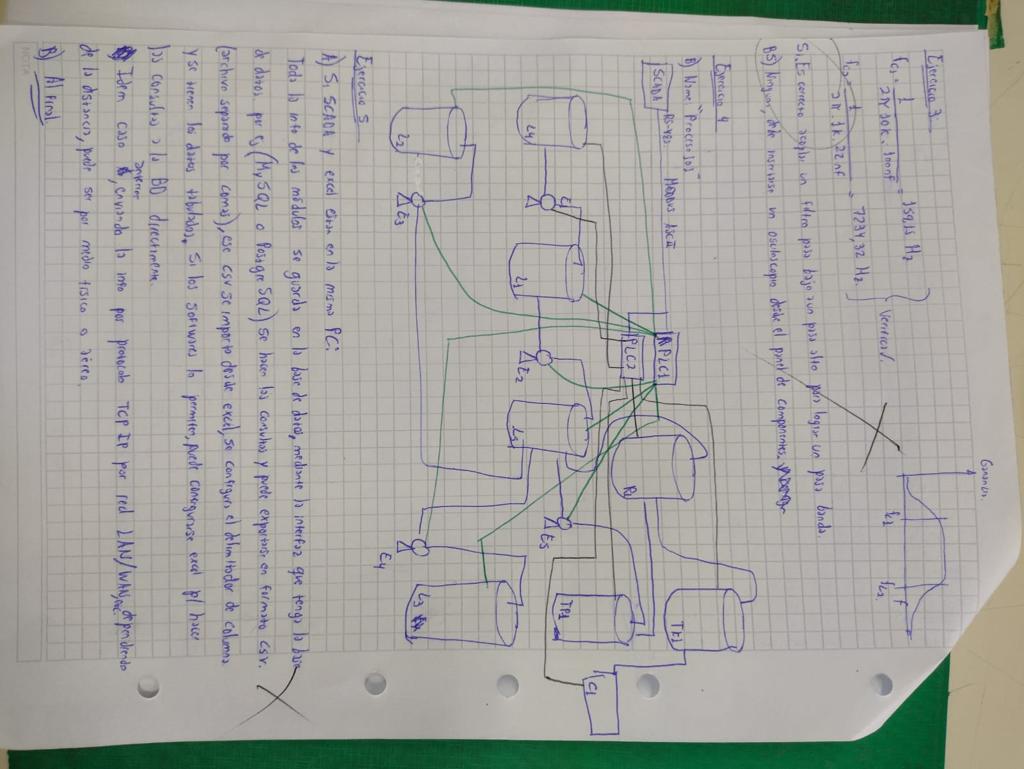 Ganancia
Ejercicio 3
fc1 = 1 / 2π 10k . 100nf = 159,15 Hz
fc2 = 1 / 2π . 1k . 22nf = 7234,32 Hz.
Verifica
fc1 fc2 f
Si, Es correcto acoplar un filtro paso bajo a un paso alto para lograr un paso banda.
B5) Ninguna, debe insertarse un osciloscopio desde el panel de componentes.
Ejercicio 4
B) Name "Proceso 501"
SCADA RS-485 MODBUS ASCII
PLC1
PLC2
R1
TK1
TP1
C1
L4
E1
L1
E2
L5
E5
L2
E3
E4
L3
Ejercicio 5
A) Si SCADA y excel estan en la misma PC:
Toda la info de los módulos se guarda en la base de datos, mediante la interfaz que tenga la base
de datos. por ej (MySQL o PostgreSQL) se hacen las consultas y puede exportarse en formato csv.
(archivo separado por comas), ese csv se importa desde excel, se configura el delimitador de columna
y se tienen los datos tabulados. Si los softwares lo permiten, puede configurarse excel p/ hacer
las consultas a la BD directamente.
Idem caso anterior, enviando la info por protocolo TCP IP por red LAN/WAN, etc. dependiendo
de la distancia, puede ser por medio fisico o aéreo.
B) Al final
NOTA